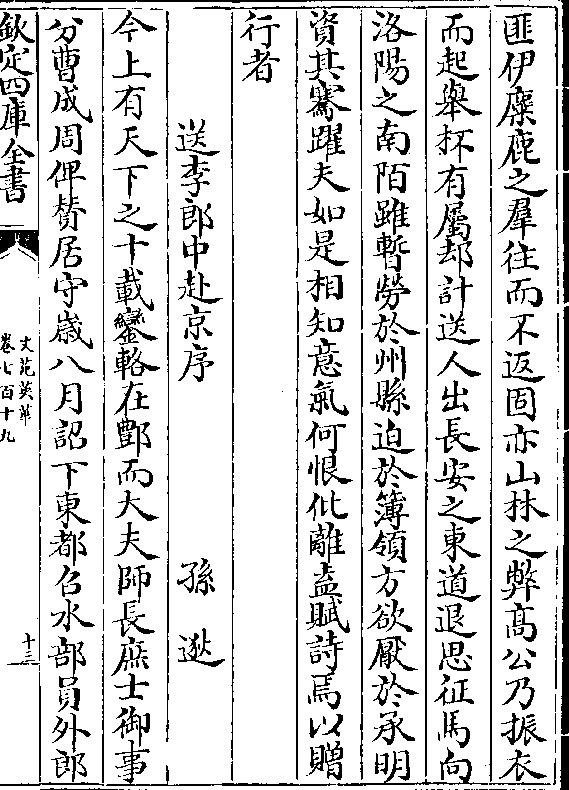 匪伊麋鹿之羣往而不返固亦山林之弊髙公乃振衣
而起舉抔有屬却計送人出長安之東道退思征馬向
洛陽之南陌雖暫勞於州縣迫於簿領方欲厭於承明
資其騫躍夫如是相知意氣何恨仳離盍賦詩焉以贈
行者
送李郎中赴京序　孫逖
今上有天下之十載鑾輅在酆而大夫師長庶士御事
分曹成周俾賛居守歲八月詔下東都召水部員外郎
欽定四庫全書
文苑英華
卷七百十九
十三